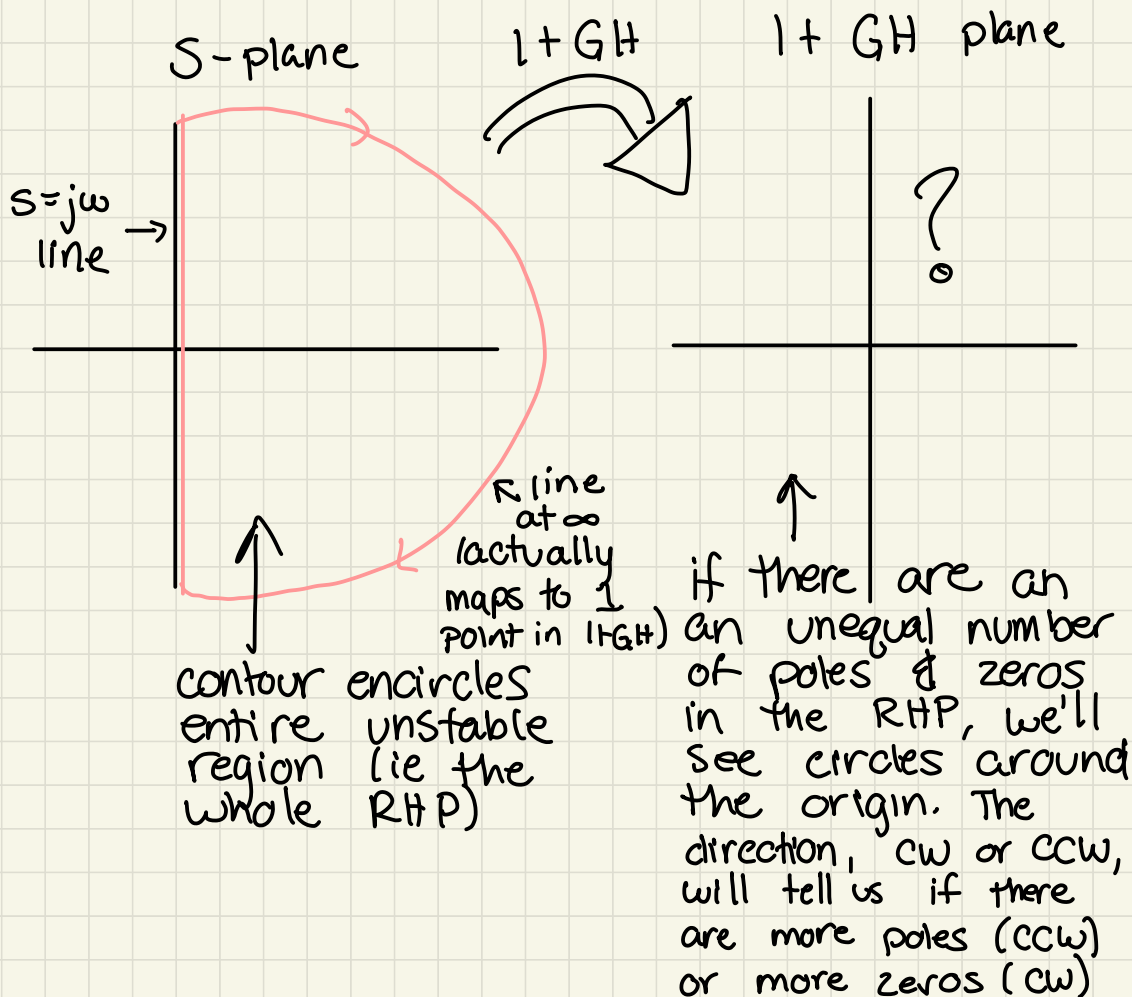 S-plane
1 + GH
1 + GH plane
s=jω
line →
?
↖ line
at ∞
(actually
maps to 1
point in 1+GH)
contour encircles
entire unstable
region (ie the
whole RHP)
if there are an
an unequal number
of poles & zeros
in the RHP, we'll
see circles around
the origin. The
direction, CW or CCW,
will tell us if there
are more poles (CCW)
or more zeros (CW)